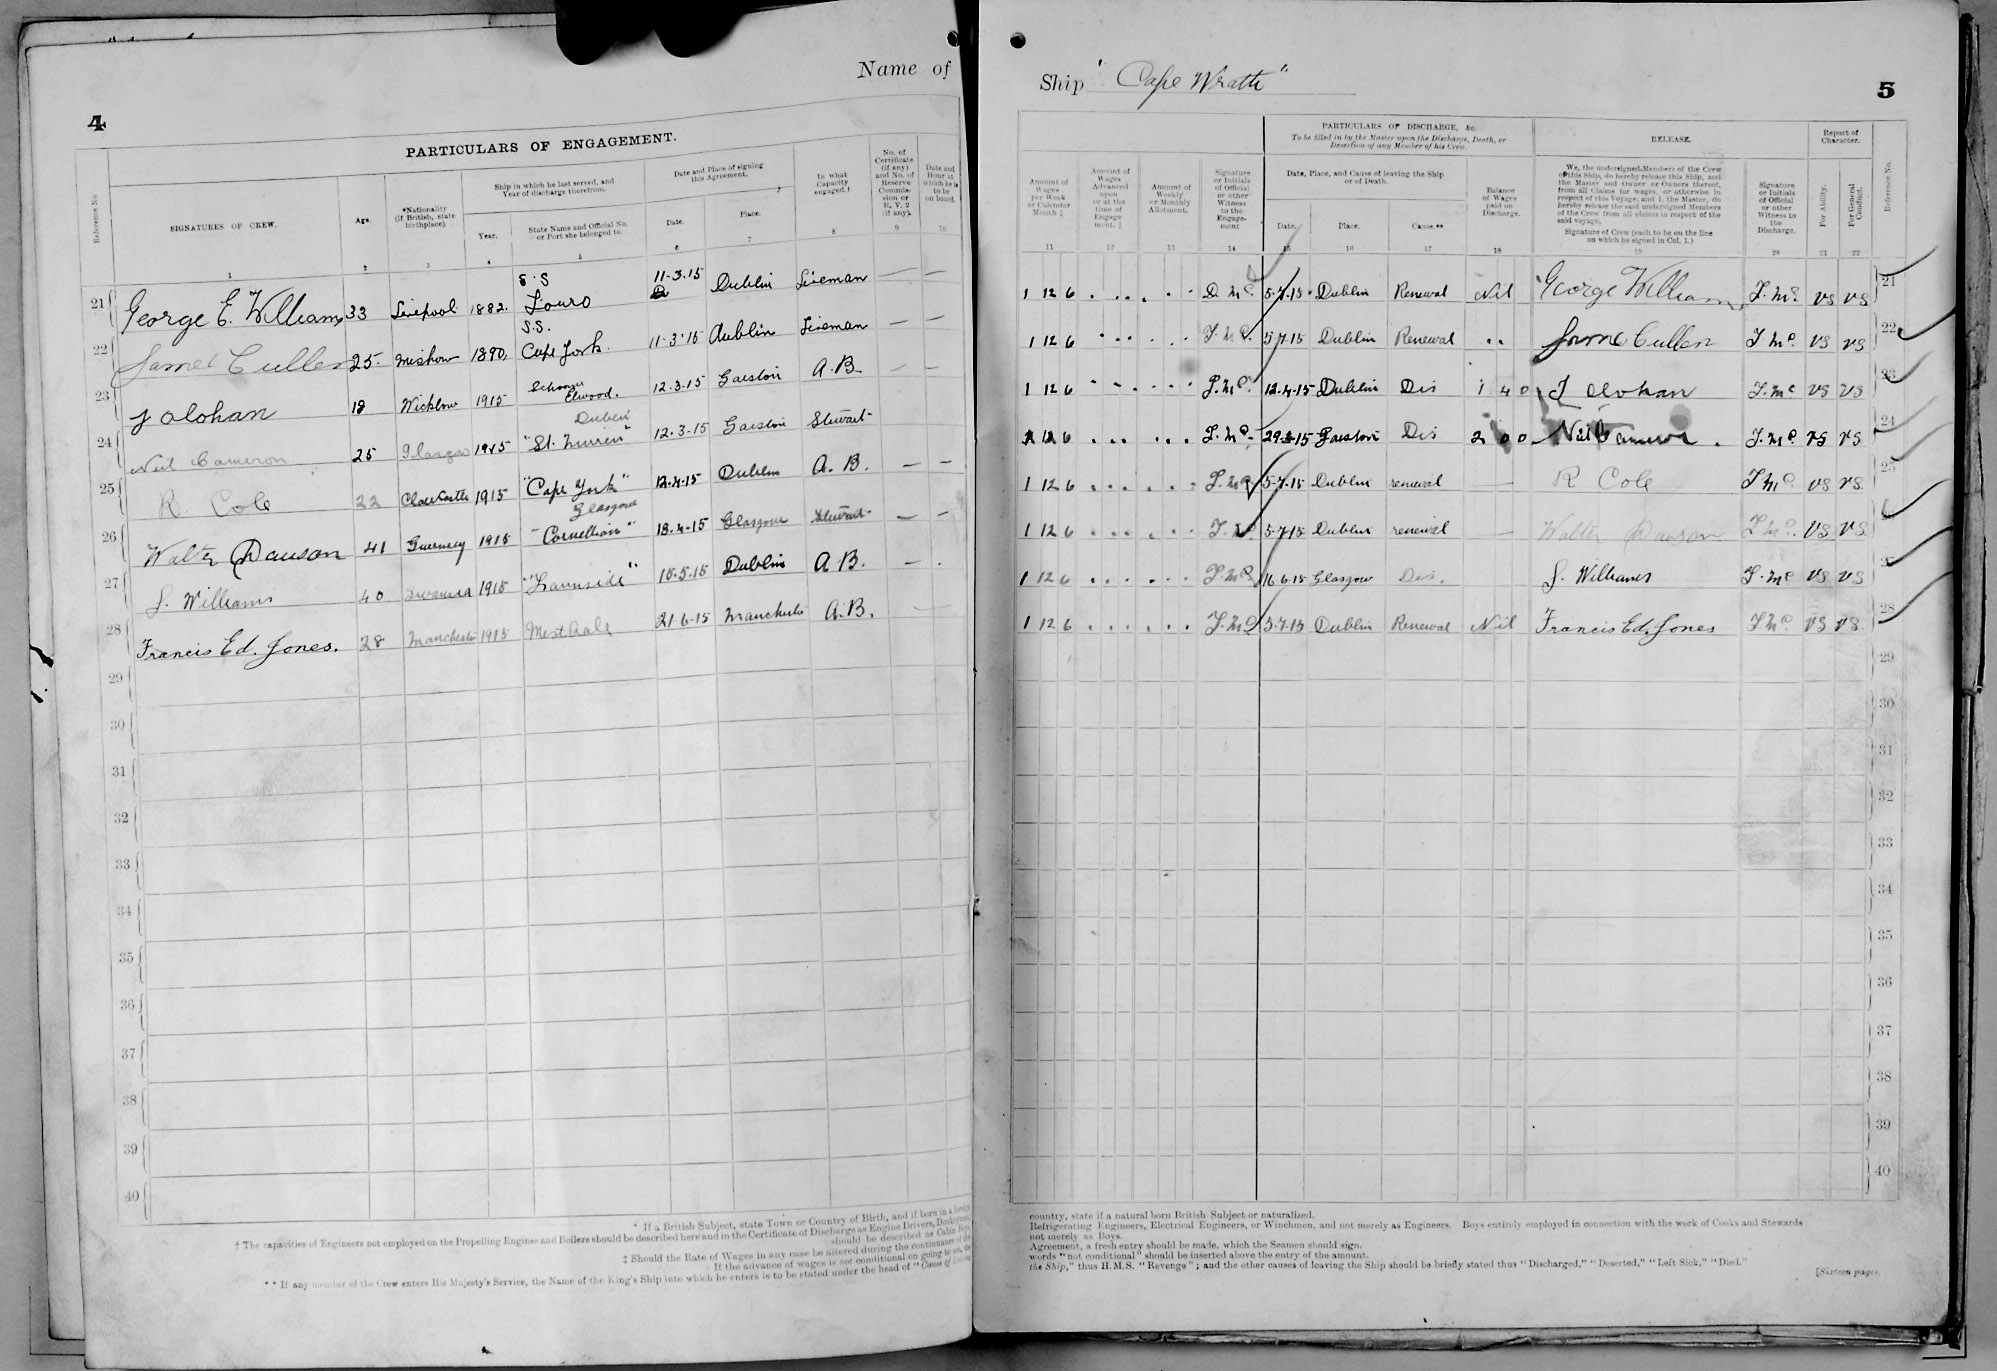 Name of
4
PARTICULARS OF ENGAGEMENT.
Reference No.
SIGNATURES OF CREW.
Age.
*Nationality (if British, state birthplace).
Ship in which he last served, and Year of discharge therefrom.
Year.
State Name and Official No. or Port she belonged to.
Date and Place of signing this Agreement.
Date.
Place.
In what Capacity engaged.†
No. of Certificate (if any) and No. of Reserve Commission or R. V. 2 (if any).
Date and Hour at which he is to be on board.
1 2 3 4 5 6 7 8 9 10
21 George E. William 33 Liverpool 1882. S.S Touro 11-3-15 Dublin Fireman — —
22 James Cullen 25 1890 S.S. Cape York. 11-3-15 Dublin Fireman — —
23 J Olohan 18 Wicklow 1915 Schooner Elwood. 12-3-15 Garston A.B. — —
24 Neil Cameron 25 Glasgow 1915 Dublin "St. Mirren" 12-3-15 Garston Stewart
25 R. Cole 22 1915 "Cape York" 12-4-15 Dublin A.B. — —
26 Walter Dawson 41 Guernsey 1915 Glasgow "Cornelhian" 18-4-15 Glasgow Stewart — —
27 J. Williams 40 Swansea 1915 10-5-15 Dublin A.B. — .
28 Francis Ed. Jones. 28 Manchester 1915 21-6-15 Manchester A.B. —
29
30
31
32
33
34
35
36
37
38
39
40
* If a British Subject, state Town or Country of Birth, and if born in a foreign
† The capacities of Engineers not employed on the Propelling Engines and Boilers should be described here and in the Certificate of Discharge as Engine Drivers, Donkeymen,
should be described as Cabin Boys,
‡ Should the Rate of Wages in any case be altered during the continuance of the
If the advance of wages is not conditional on going to sea, the
** If any member of the Crew enters His Majesty's Service, the Name of the King's Ship into which he enters is to be stated under the head of "Cause of leaving
Ship "Cape Wrath"
5
Amount of Wages per Week or Calendar Month ‡
Amount of Wages Advanced upon or at the time of Engagement. ‡
Amount of Weekly or Monthly Allotment.
Signature or Initials of Official or other Witness to the Engagement
PARTICULARS OF DISCHARGE, &c.
To be filled in by the Master upon the Discharge, Death, or Desertion of any Member of his Crew.
Date, Place, and Cause of leaving the Ship or of Death.
Date.
Place.
Cause.**
Balance of Wages paid on Discharge.
RELEASE.
We, the undersigned Members of the Crew of this Ship, do hereby release this Ship, and the Master and Owner or Owners thereof, from all Claims for wages, or otherwise in respect of this Voyage, and I, the Master, do hereby release the said undersigned Members of the Crew from all claims in respect of the said voyage.
Signature of Crew (each to be on the line on which he signed in Col. 1.)
Signature or Initials of Official or other Witness to the Discharge.
Report of Character.
For Ability.
For General Conduct.
Reference No.
11 12 13 14 15 16 17 18 19 20 21 22
1 12 6 D Mc. 5.7.15 Dublin Renewal Nil George William J. Mc. VS VS 21
1 12 6 J. Mc. 5.7.15 Dublin Renewal " James Cullen J Mc. VS VS 22
1 12 6 J. Mc. 12.4.15 Dublin Dis 1 4 0 J Olohan J. Mc VS VS 23
1 12 6 J. Mc. 15 Garston Dis 2 0 0 Neil Cameron. J. Mc. VS VS 24
1 12 6 J. Mc. 5.7.15 Dublin renewal — R Cole J Mc. VS VS 25
1 12 6 J. Mc 5.7.15 Dublin renewal — Walter Dawson J Mc. VS VS
1 12 6 J. Mc. 16.6.15 Glasgow Dis. J. Williams J. Mc VS VS
1 12 6 J. Mc 5.7.15 Dublin Renewal Nil Francis Ed. Jones J Mc. VS VS 28
29
30
31
32
33
34
35
36
37
38
39
40
country, state if a natural born British Subject or naturalized.
Refrigerating Engineers, Electrical Engineers, or Winchmen, and not merely as Engineers. Boys entirely employed in connection with the work of Cooks and Stewards
not merely as Boys.
Agreement, a fresh entry should be made, which the Seamen should sign.
words "not conditional" should be inserted above the entry of the amount.
the Ship," thus H.M.S. "Revenge"; and the other causes of leaving the Ship should be briefly stated thus "Discharged," "Deserted," "Left Sick," "Died."
[Sixteen pages.